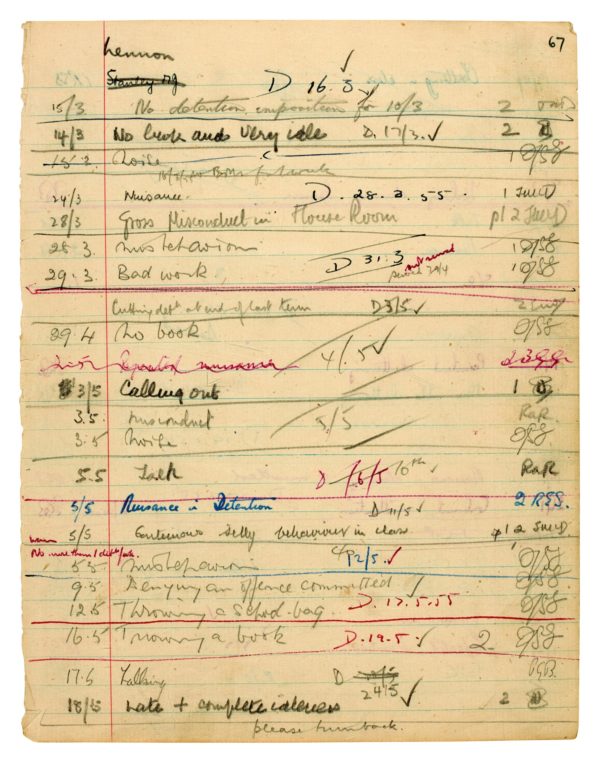 67
Lennon
D 16.3
15/3 No detention imposition for 10/3 2
14/3 No book and very idle D. 17/3. 2
15.3. Noise 1
24/3 Nuisance. D. 28. 3. 55. 1
28/3 Gross Misconduct in House Room p! 2
28.3. Misbehaviour 1
29.3. Bad work D 31.3 1
Cutting det. at end of last term D3/5 2
29.4 No book
Repeated nuisance 4/.5
3/5 Calling out 1
3.5. Misconduct 5/5 RaR.
3.5. Noise
5.5 Talk D /6/5 10th RaR
5/5 Nuisance in Detention D 11/5 2
5/5 Continuous silly behaviour in class 2
No more than 1 det
5.5 Misbehaviour 12/5
9.5 Denying an offence committed
12.5 Throwing a School-bag. D. 17.5.55
16.5 Throwing a book D. 19.5 2.
17.5 Talking D 24/5
18/5 Late + complete idleness 2
please turn back.